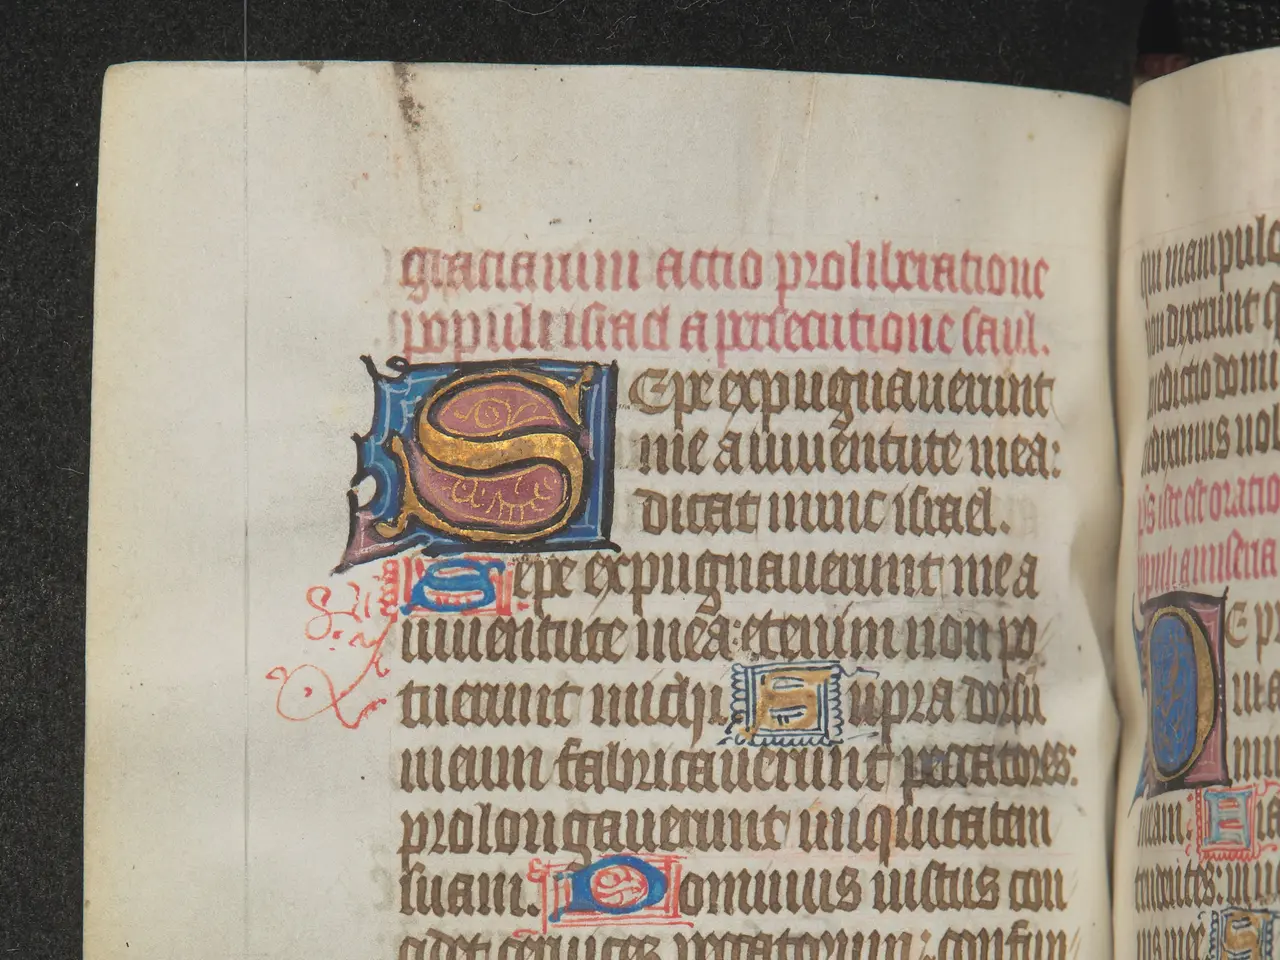 graciarum actio pro liberatione
populi israel a persecutione saul.
SEpe expugnauerunt
me a iuuentute mea:
dicat nunc israel.
Sepe expugnauerunt me a
iuuentute mea: etenim non po
tuerunt michi. Supra dorsū
meum fabricauerunt peccatores:
prolongauerunt iniquitatem
suam. Dominus iustus con
cidet ceruices peccatorum: confun
qui manipulo
non dixerunt q
nedictio domi
nediximus uob
ps iste est oratio
populi a miseria
DE p